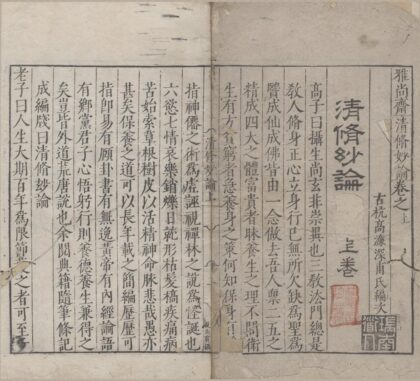 雅尚齋清脩妙論卷之上
古杭高濂深甫氏編次
清脩妙論 上卷
高子曰攝生尚玄非崇異也三教法門總是
教人脩身正心立身行己無所欠缺為聖為
賢成仙成佛皆由一念做去吾人稟二五之
精成四大之體富貴者昧養生之理不問衛
生有方貧窮者急養身之策何知保身
清脩妙論上
指神僊之術為虛誣視禪林之說為怪誕也
六慾七情哀樂銷爍日就形枯髮槁疾痛病
苦始索草根樹皮以活精神命脉悲哉愚亦
甚矣保養之道可以長年載之簡編歷歷可
指即易有頤卦書有無逸黃帝有內經論語
有鄉黨君子心悟躬行則養德養生兼得之
矣豈皆外道荒唐說也余閱典籍隨筆條記
成編牋曰清脩妙論
老子曰人生大期百年為限節之者可至